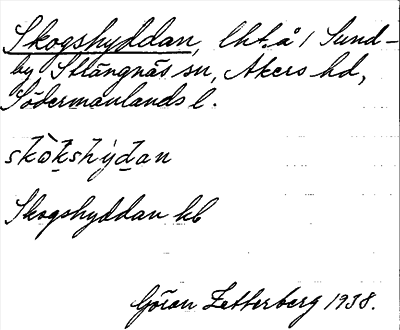 Skogshyddan, lht. å 1 Sund-
by Strängnäs sn, Åkers hd,
Södermanlands l.
skòkshỳdan
Skogshyddan kb
Göran Zetterberg 1938.